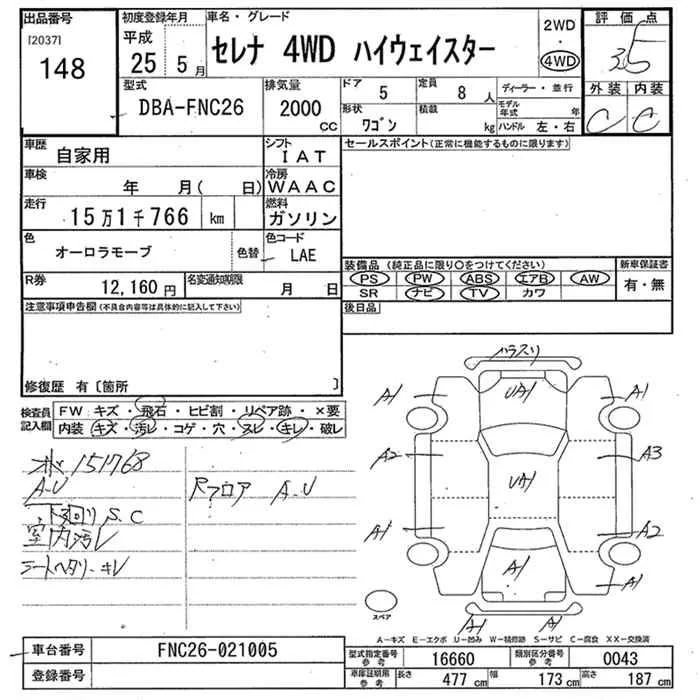 出品番号
[2037]
148
初度登録年月
平成
25 5 月
車名・グレード
セレナ 4WD ハイウェイスター
2WD
4WD
評価点
3.5
外装 内装
C C
型式
DBA-FNC26
排気量
2000
cc
ドア 5
定員 8 人
ディーラー・並行
形状 ワゴン
積載 kg
モデル年式 年
ハンドル 左・右
車歴
自家用
シフト
IAT
セールスポイント(正常に機能するものに限ります)
車検
年 月( 日)
冷房
WAAC
走行
15万1千766 km
燃料
ガソリン
色
オーロラモーブ
色替
色コード
LAE
装備品 (純正品に限り○をつけてください)
PS PW ABS エアB AW
SR ナビ TV カワ
新車保証書
有・無
R券
12,160 円
名変通知期限
月 日
後日品
注意事項申告欄(不具合内容等は具体的に記入して下さい)
修復歴 有〔箇所 〕
検査員
記入欄
FW キズ・飛石・ヒビ割・リペア跡・×要
内装 キズ・汚レ・コゲ・穴・スレ・キレ・破レ
151768
A-U
Rフロア A-U
下廻り S.C
室内汚レ
シートヘタリ・キレ
ハラスリ
A1 UA1 A1
A2 A3
UA1
A1 A2
A1 A1
A1 A1
スペア
A−キズ E−エクボ U−凹み W−補修跡 S−サビ C−腐食 XX−交換済
車台番号
FNC26-021005
登録番号
型式指定番号
参考
16660
類別区分番号
参考
0043
車庫証明用
参考
長さ 477 cm
幅 173 cm
高さ 187 cm